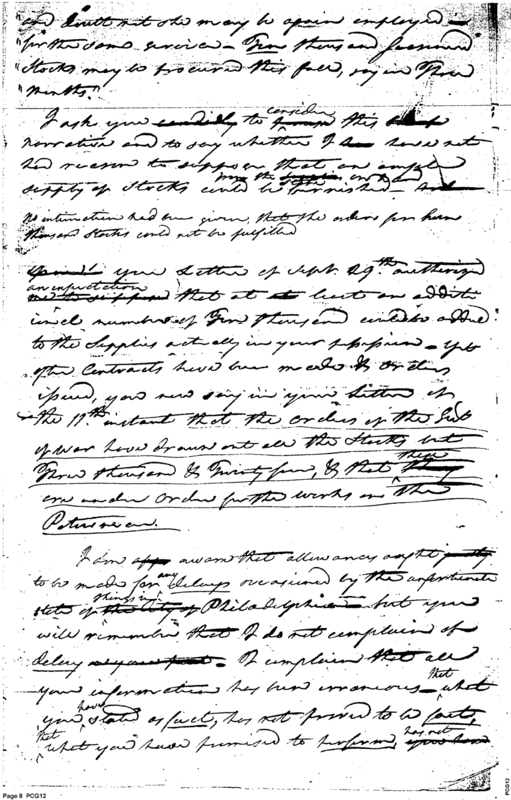 and doubt not she may be again employed —
for the same service — Ten thousand seasoned
Stocks may be procured this fall, say in Three
months."
I ask you candidly to consider this
narration and to say whether I have not
had reason to suppose that an ample
supply of Stocks could be furnished —
No intimation had been given, that the orders for
thousand Stocks could not be fulfilled
your Letter of Sept. 29th authorized
an expectation
me to suppose that at least an additi
onal number of Ten thousand could be added
to the Supplies actually in your possession — Yet
after Contracts have been made & Orders
issued, you now say in your letter of
the 17th instant that the Orders of the Sec.
of war have drawn out all the Stocks but
Three thousand & Twenty four, & that these
are under Order for the works on the
Potomac.
I am aware that allowances ought
to be made for any delays occasioned by the unfortunate
state of things in Philadelphia — but you
will remember that I do not complain of
delay — I complain that all
your information has been erroneous — that what
you have stated as fact, has not proved to be fact,
that what you have promised to perform, has not
Page 8 PCG12
PCG12